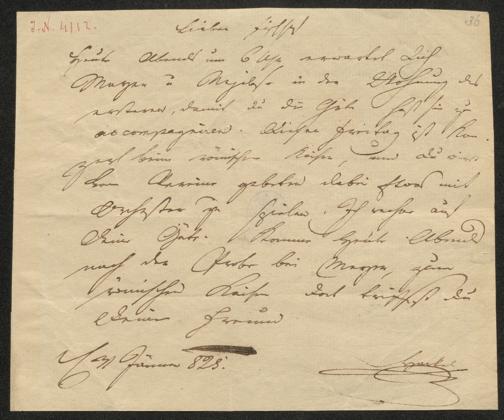 J.N. 4/12.
36
Lieber
Heute Abends um 6 Uhr erwartet Dich
Mayer u in der Wohnung des
ersteren, damit du die Güte hast sie zu
accompagniren. Diesen Freitag ist Kon-
zert beim römischen Kaiser, und du
dem Vereine gebeten dabei Etwas mit
Orchester zu spielen. Ich rechne auf
Deine Güte. Komme heute Abends
nach der Probe bei Mayer, zum
römischen Kaiser dort triffst du
Deinen Freund
Jänner 825.